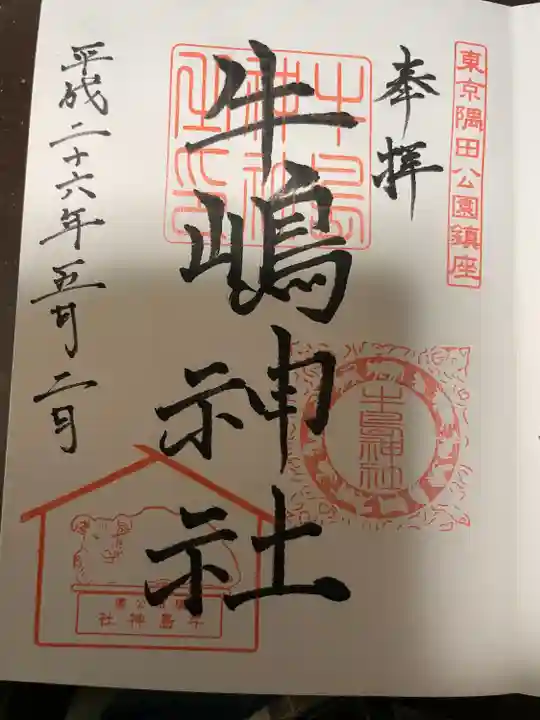 東京隅田公園鎮座
奉拝
牛嶋神社
平成二十六年五月二日
牛島神社
牛島神社